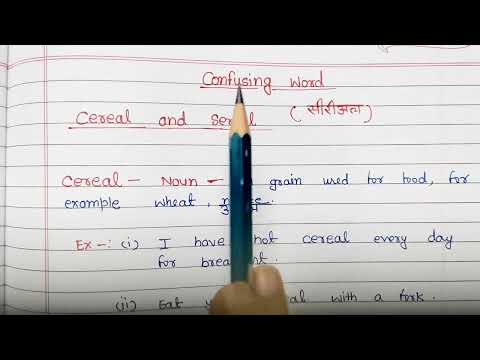 Confusing Word
Cereal and (सीरीअल)
Cereal - Noun - grain used for food, for
example wheat,
Ex-: (i) I have hot cereal every day
for
(ii) Eat with a fork.